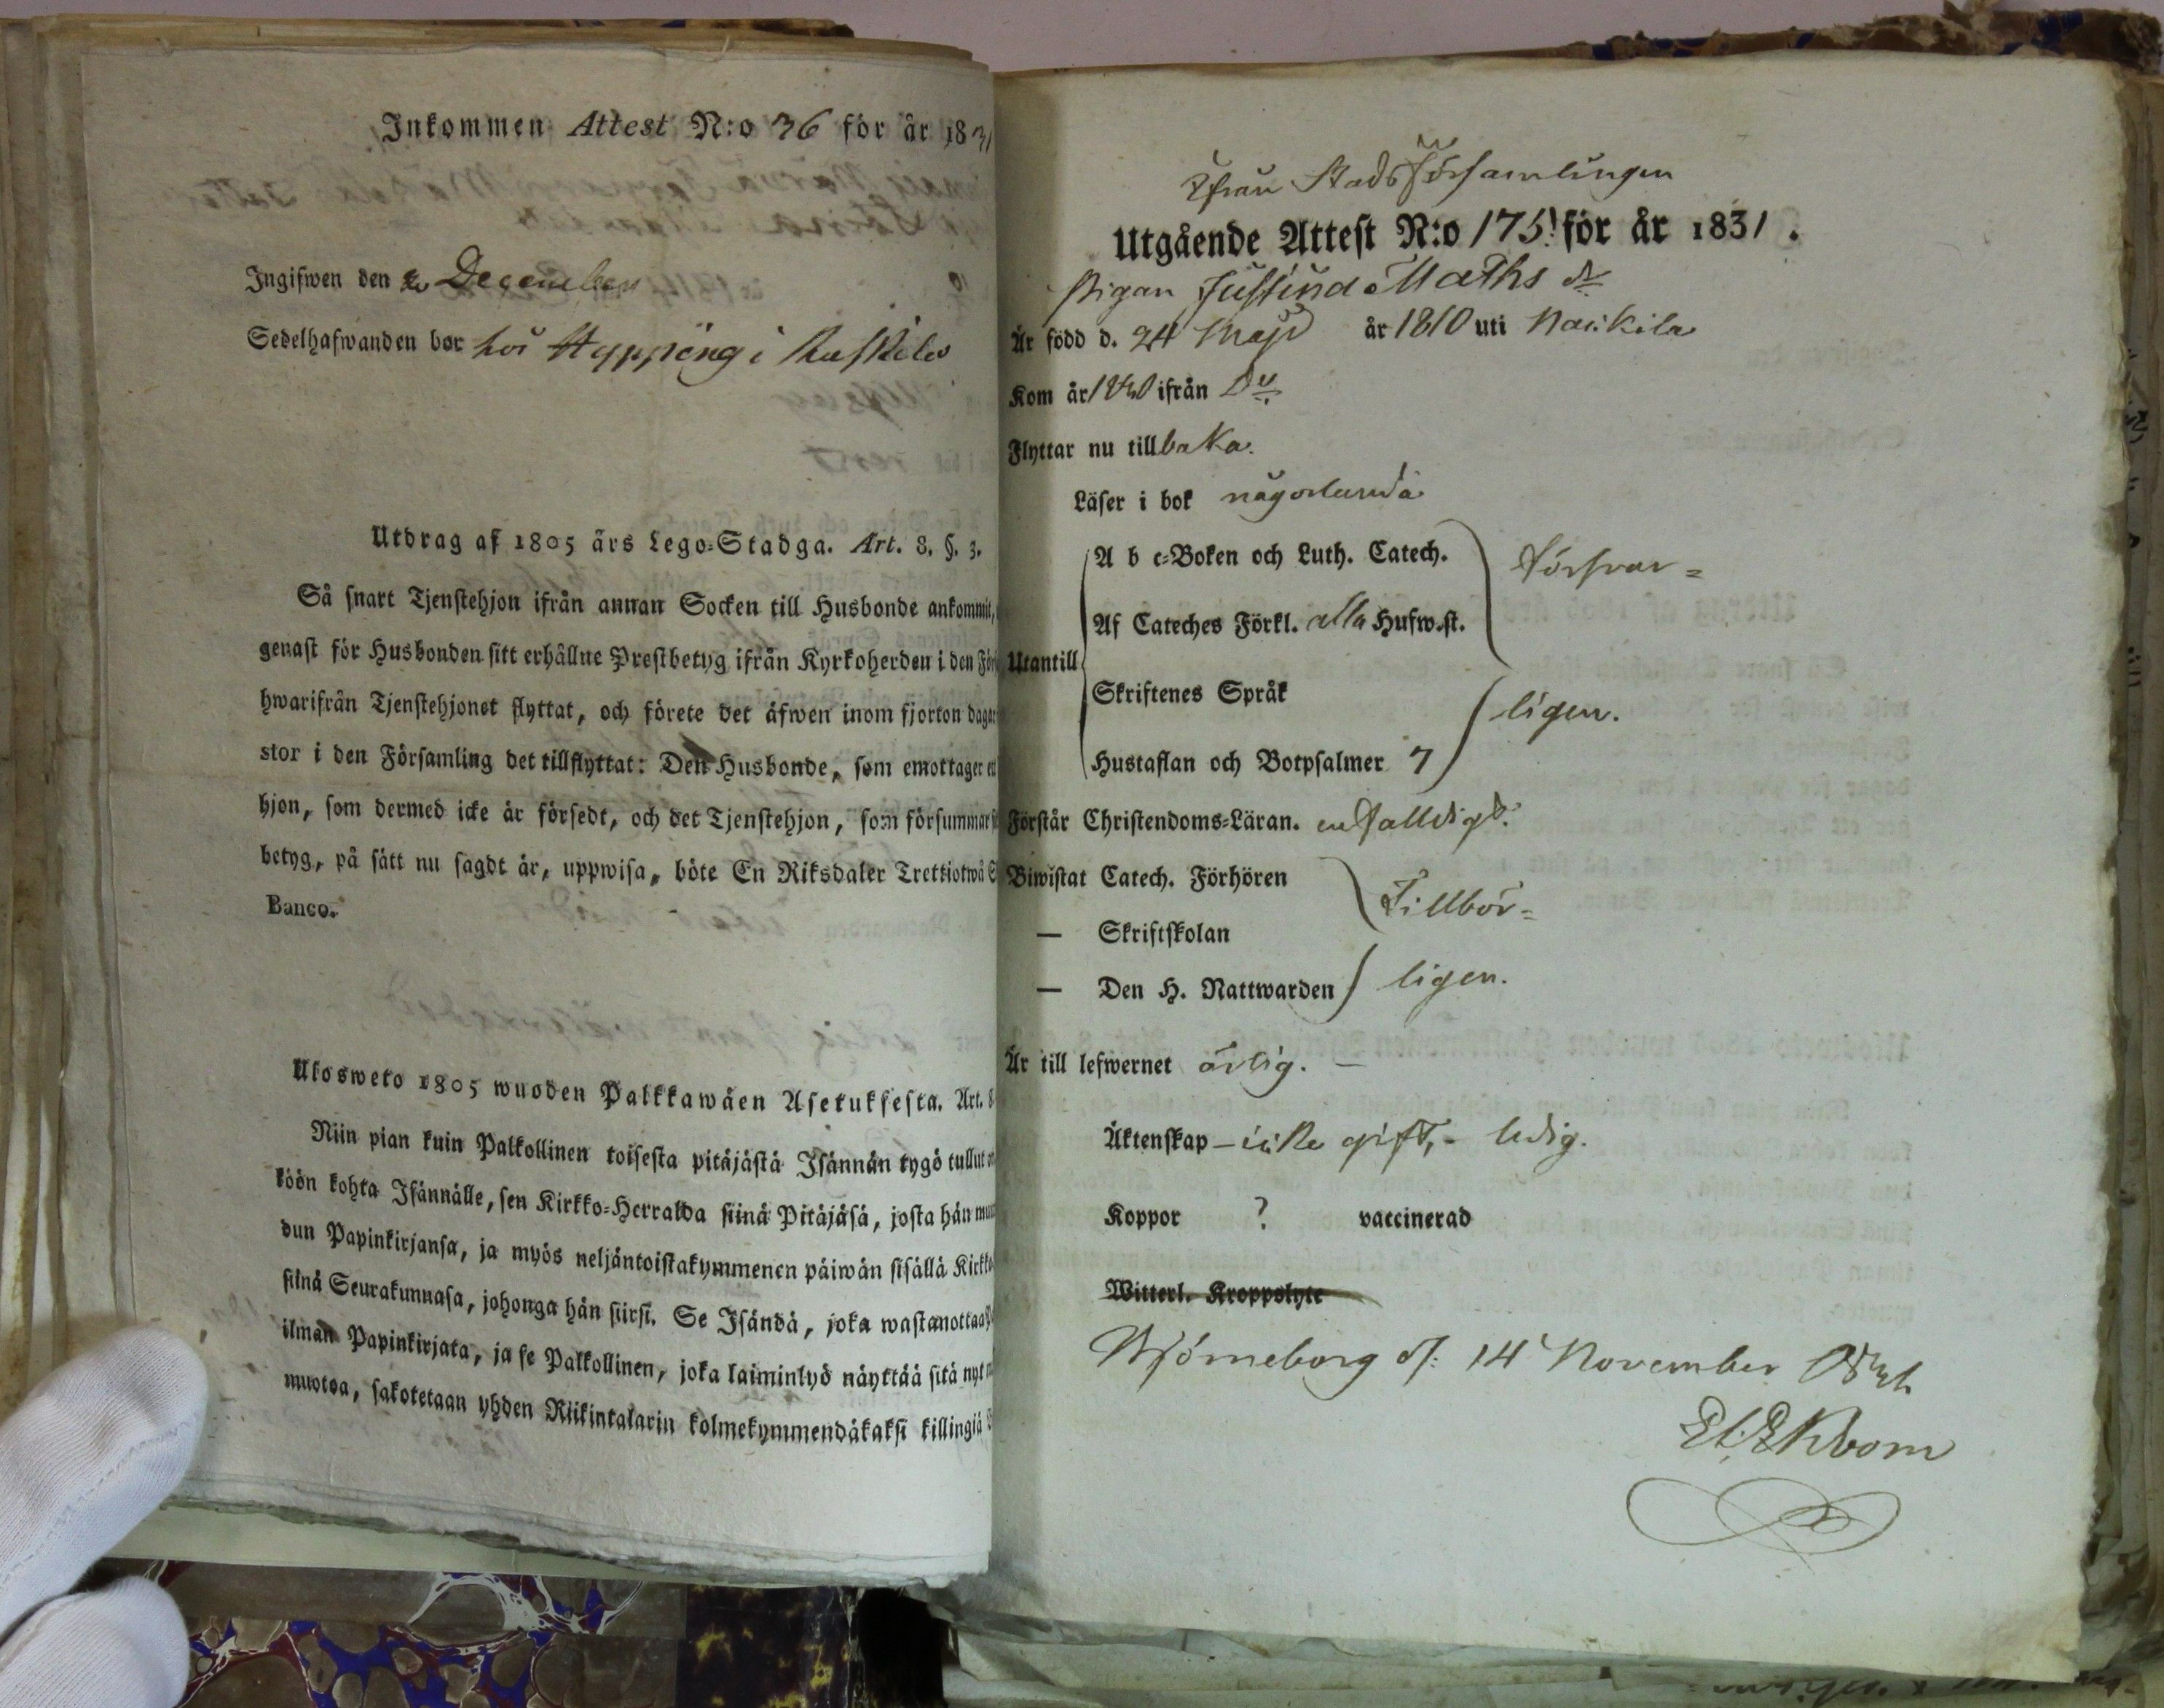 Inkommen Attest N:o 36 för år 1831
Ingifwen den December
Sedelhafwanden bor hos Hyppöng i
Utdrag af 1805 års Lego-Stadga. Art. 8. §. 3.
Så snart Tjenstehjon ifrån annan Socken till Husbonde ankommit,
genast för Husbonden sitt erhållne Prestbetyg ifrån Kyrkoherden i den
hwarifrån Tjenstehjonet flyttat, och förete det äfwen inom fjorton dagar
stor i den Församling det tillflyttat: Den Husbonde, som emottager
hjon, som dermed icke är försedt, och det Tjenstehjon, som försummar
betyg, på sätt nu sagdt är, uppwisa, böte En Riksdaler Trettiotwå
Banco.
Ulosweto 1805 wuoden Palkkawäen Asetuksesta. Art. 8
Niin pian kuin Palkollinen toisesta pitäjästä Isännän tygö tullut
köön kohta Isännälle, sen Kirkko-Herralda siinä Pitäjäsä, josta hän
dun Papinkirjansa, ja myös neljäntoistakymmenen päiwän sisällä
siinä Seurakunnasa, johonga hän siirsi. Se Isändä, joka wastanottaa
ilman Papinkirjata, ja se Palkollinen, joka laiminlyö näyttää sitä nyt
muotoa, sakotetaan yhden Riikintalarin kolmekymmendäkaksi killingiä
Ifrån Stads Församlingen
Utgående Attest N:o 175! för år 1831.
Pigan Justina Maths dr
Är född d. 24 Maji år 1810 uti Nackila
Kom år 1830 ifrån Do
Flyttar nu tillbaka.
Läser i bok någorlunda
A b c-Boken och Luth. Catech. Försvar=
Af Cateches Förkl. alla Hufw.st.
Utantill
Skriftenes Språk ligen.
Hustaflan och Botpsalmer 7
Förstår Christendoms-Läran. enfalldigt.
Biwistat Catech. Förhören Tillbör=
— Skriftskolan
— Den H. Nattwarden ligen.
Är till lefwernet ärlig. —
Äktenskap – icke gift, – ledig.
Koppor ? vaccinerad
Witterl. Kroppslyte
Björneborg d. 14 November 1831